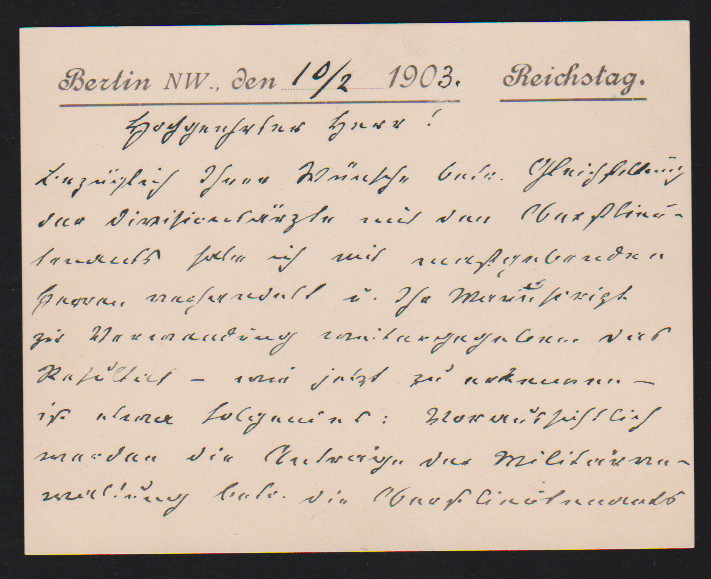 Berlin NW., den 10/2 1903. Reichstag.
Hochgeehrter Herr!
Bezüglich Ihrer Wünsche betr. Gleichstellung
der Divisionsärzte mit den Oberstlieu-
tenants habe ich mit maßgebenden
Herren verhandelt u. Ihr Manuskript
zur Verwendung weitergegeben. Das
Resultat – wie jetzt zu erkennen –
ist etwa folgendes: Voraussichtlich
werden die Anträge der Militärver-
waltung betr. die Oberstlieutenants